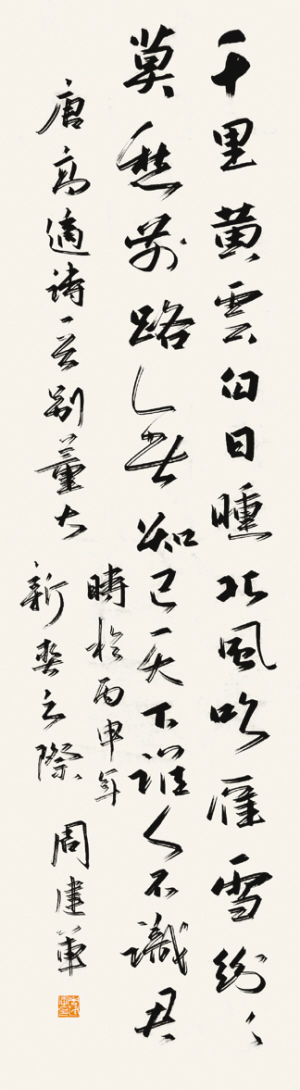 千里黄雲白日曛北風吹雁雪紛々
莫愁前路無知己天下誰人不識君
唐高適詩一首别董大
時於丙申年
新春之際 周建軍